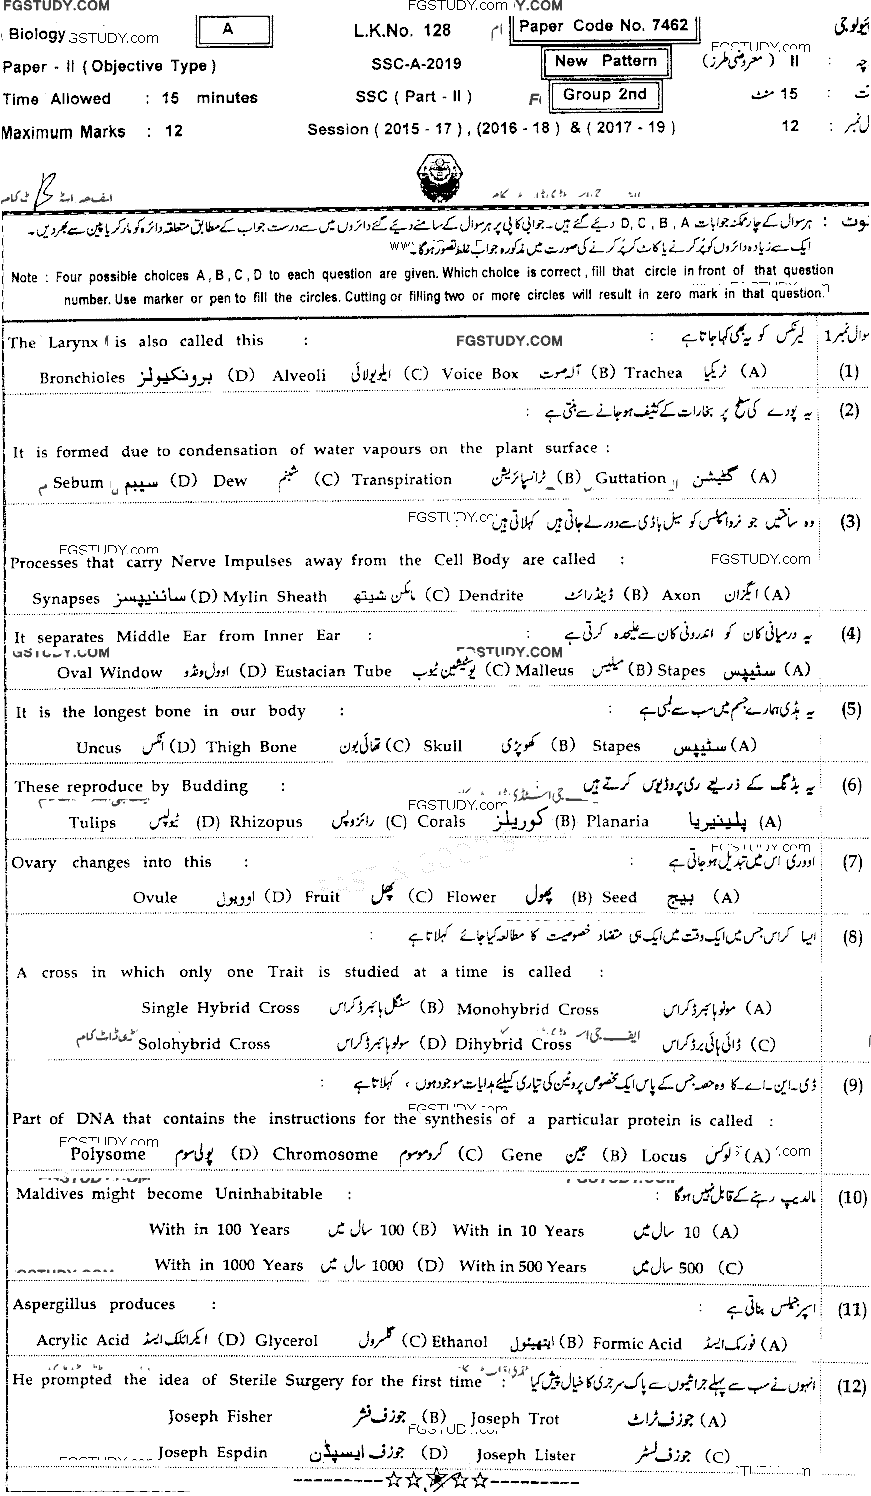 FGSTUDY.COM
FGSTUDY.com FGSTUDY.COM
Biology GSTUDY.com A L.K.No. 128 Paper Code No. 7462
FGSTUDY.com
Paper - II ( Objective Type ) SSC-A-2019 New Pattern II ( معروضی طرز )
Time Allowed : 15 minutes SSC ( Part - II ) Group 2nd 15 منٹ
Maximum Marks : 12 Session ( 2015 - 17 ) , (2016 - 18 ) & ( 2017 - 19 ) 12
نوٹ : ہر سوال کے چار ممکنہ جوابات D , C , B , A دیئے گئے ہیں۔ جوابی کاپی پر ہر سوال کے سامنے دیئے گئے دائروں میں سے درست جواب کے مطابق متعلقہ دائرہ کو مارکر یا پین سے بھر دیں۔
ایک سے زیادہ دائروں کو پُر کرنے یا کاٹ کر پُر کرنے کی صورت میں مذکورہ جواب غلط تصور ہوگا۔
Note : Four possible choices A , B , C , D to each question are given. Which choice is correct , fill that circle in front of that question
number. Use marker or pen to fill the circles. Cutting or filling two or more circles will result in zero mark in that question.
The Larynx is also called this : FGSTUDY.COM لیرنکس کو یہ بھی کہا جاتا ہے : سوال نمبر 1
Bronchioles برونکیولز (D) Alveoli ایلویولائی (C) Voice Box آلہ صوت (B) Trachea ٹریکیا (A) (1)
یہ پودے کی سطح پر بخارات کے کثیف ہو جانے سے بنتی ہے : (2)
It is formed due to condensation of water vapours on the plant surface :
Sebum سیبم (D) Dew شبنم (C) Transpiration ٹرانسپائریشن (B) Guttation گٹیشن (A)
FGSTUDY.co وہ ساختیں جو نروامپلس کو سیل باڈی سے دور لے جاتی ہیں کہلاتی ہیں (3)
FGSTUDY.com
Processes that carry Nerve Impulses away from the Cell Body are called : FGSTUDY.com
Synapses سائنیپسز (D) Mylin Sheath مائلن شیتھ (C) Dendrite ڈینڈرائٹ (B) Axon ایگزان (A)
It separates Middle Ear from Inner Ear : یہ درمیانی کان کو اندرونی کان سے علیحدہ کرتی ہے : (4)
GSTUDY.COM FGSTUDY.COM
Oval Window اوول ونڈو (D) Eustacian Tube یوسٹیشین ٹیوب (C) Malleus میلیس (B) Stapes سٹیپس (A)
It is the longest bone in our body : یہ ہڈی ہمارے جسم میں سب سے لمبی ہے : (5)
Uncus انکس (D) Thigh Bone تھائی بون (C) Skull کھوپڑی (B) Stapes سٹیپس (A)
These reproduce by Budding : یہ بڈنگ کے ذریعے ری پروڈیوس کرتے ہیں (6)
FGSTUDY.com
Tulips ٹیولپس (D) Rhizopus رائزوپس (C) Corals کوریلز (B) Planaria پلینیریا (A)
FGSTUDY.com
Ovary changes into this : اووری اس میں تبدیل ہو جاتی ہے : (7)
Ovule اوویول (D) Fruit پھل (C) Flower پھول (B) Seed بیج (A)
ایسا کراس جس میں ایک وقت میں ایک ہی متضاد خصوصیت کا مطالعہ کیا جائے کہلاتا ہے : (8)
A cross in which only one Trait is studied at a time is called :
Single Hybrid Cross سنگل ہائبرڈ کراس (B) Monohybrid Cross مونوہائبرڈ کراس (A)
Solohybrid Cross سولوہائبرڈ کراس (D) Dihybrid Cross ڈائی ہائی برڈ کراس (C)
ڈی۔این۔اے۔کا وہ حصہ جس کے پاس ایک مخصوص پروٹین کی تیاری کیلئے ہدایات موجود ہوں ، کہلاتا ہے : (9)
FGSTUDY.com
Part of DNA that contains the instructions for the synthesis of a particular protein is called :
FGSTUDY.com
Polysome پولی سوم (D) Chromosome کروموسوم (C) Gene جین (B) Locus لوکس (A) .com
Maldives might become Uninhabitable : مالدیپ رہنے کے قابل نہیں ہوگا : (10)
With in 100 Years 100 سال میں (B) With in 10 Years 10 سال میں (A)
With in 1000 Years 1000 سال میں (D) With in 500 Years 500 سال میں (C)
FGSTUDY.COM
Aspergillus produces : اسپرجیلس بناتی ہے : (11)
Acrylic Acid ایکرائلک ایسڈ (D) Glycerol گلسرول (C) Ethanol ایتھینول (B) Formic Acid فورمک ایسڈ (A)
He prompted the idea of Sterile Surgery for the first time : انہوں نے سب سے پہلے جراثیموں سے پاک سرجری کا خیال پیش کیا (12)
Joseph Fisher جوزف فشر (B) Joseph Trot جوزف ٹراٹ (A)
FGSTUD
FGSTUDY.com Joseph Espdin جوزف ایسپڈن (D) Joseph Lister جوزف لسٹر (C)